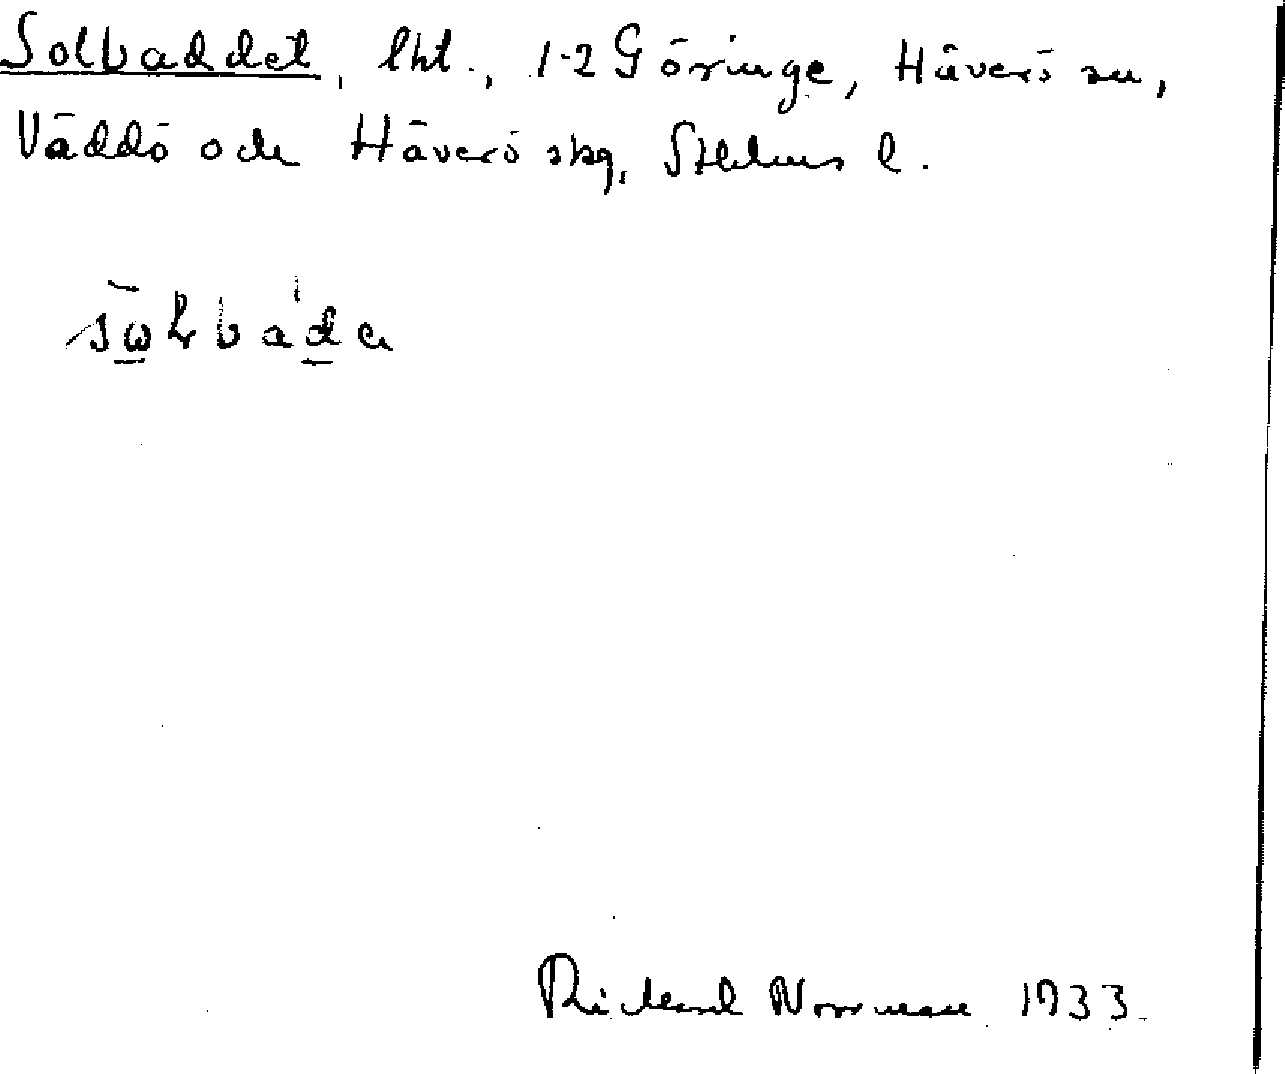 Solbaddet, lht., 1-2 Göringe, Häverö sn,
Väddö och Häverö skg, Sthlms l.
Rickard Norrman 1933.